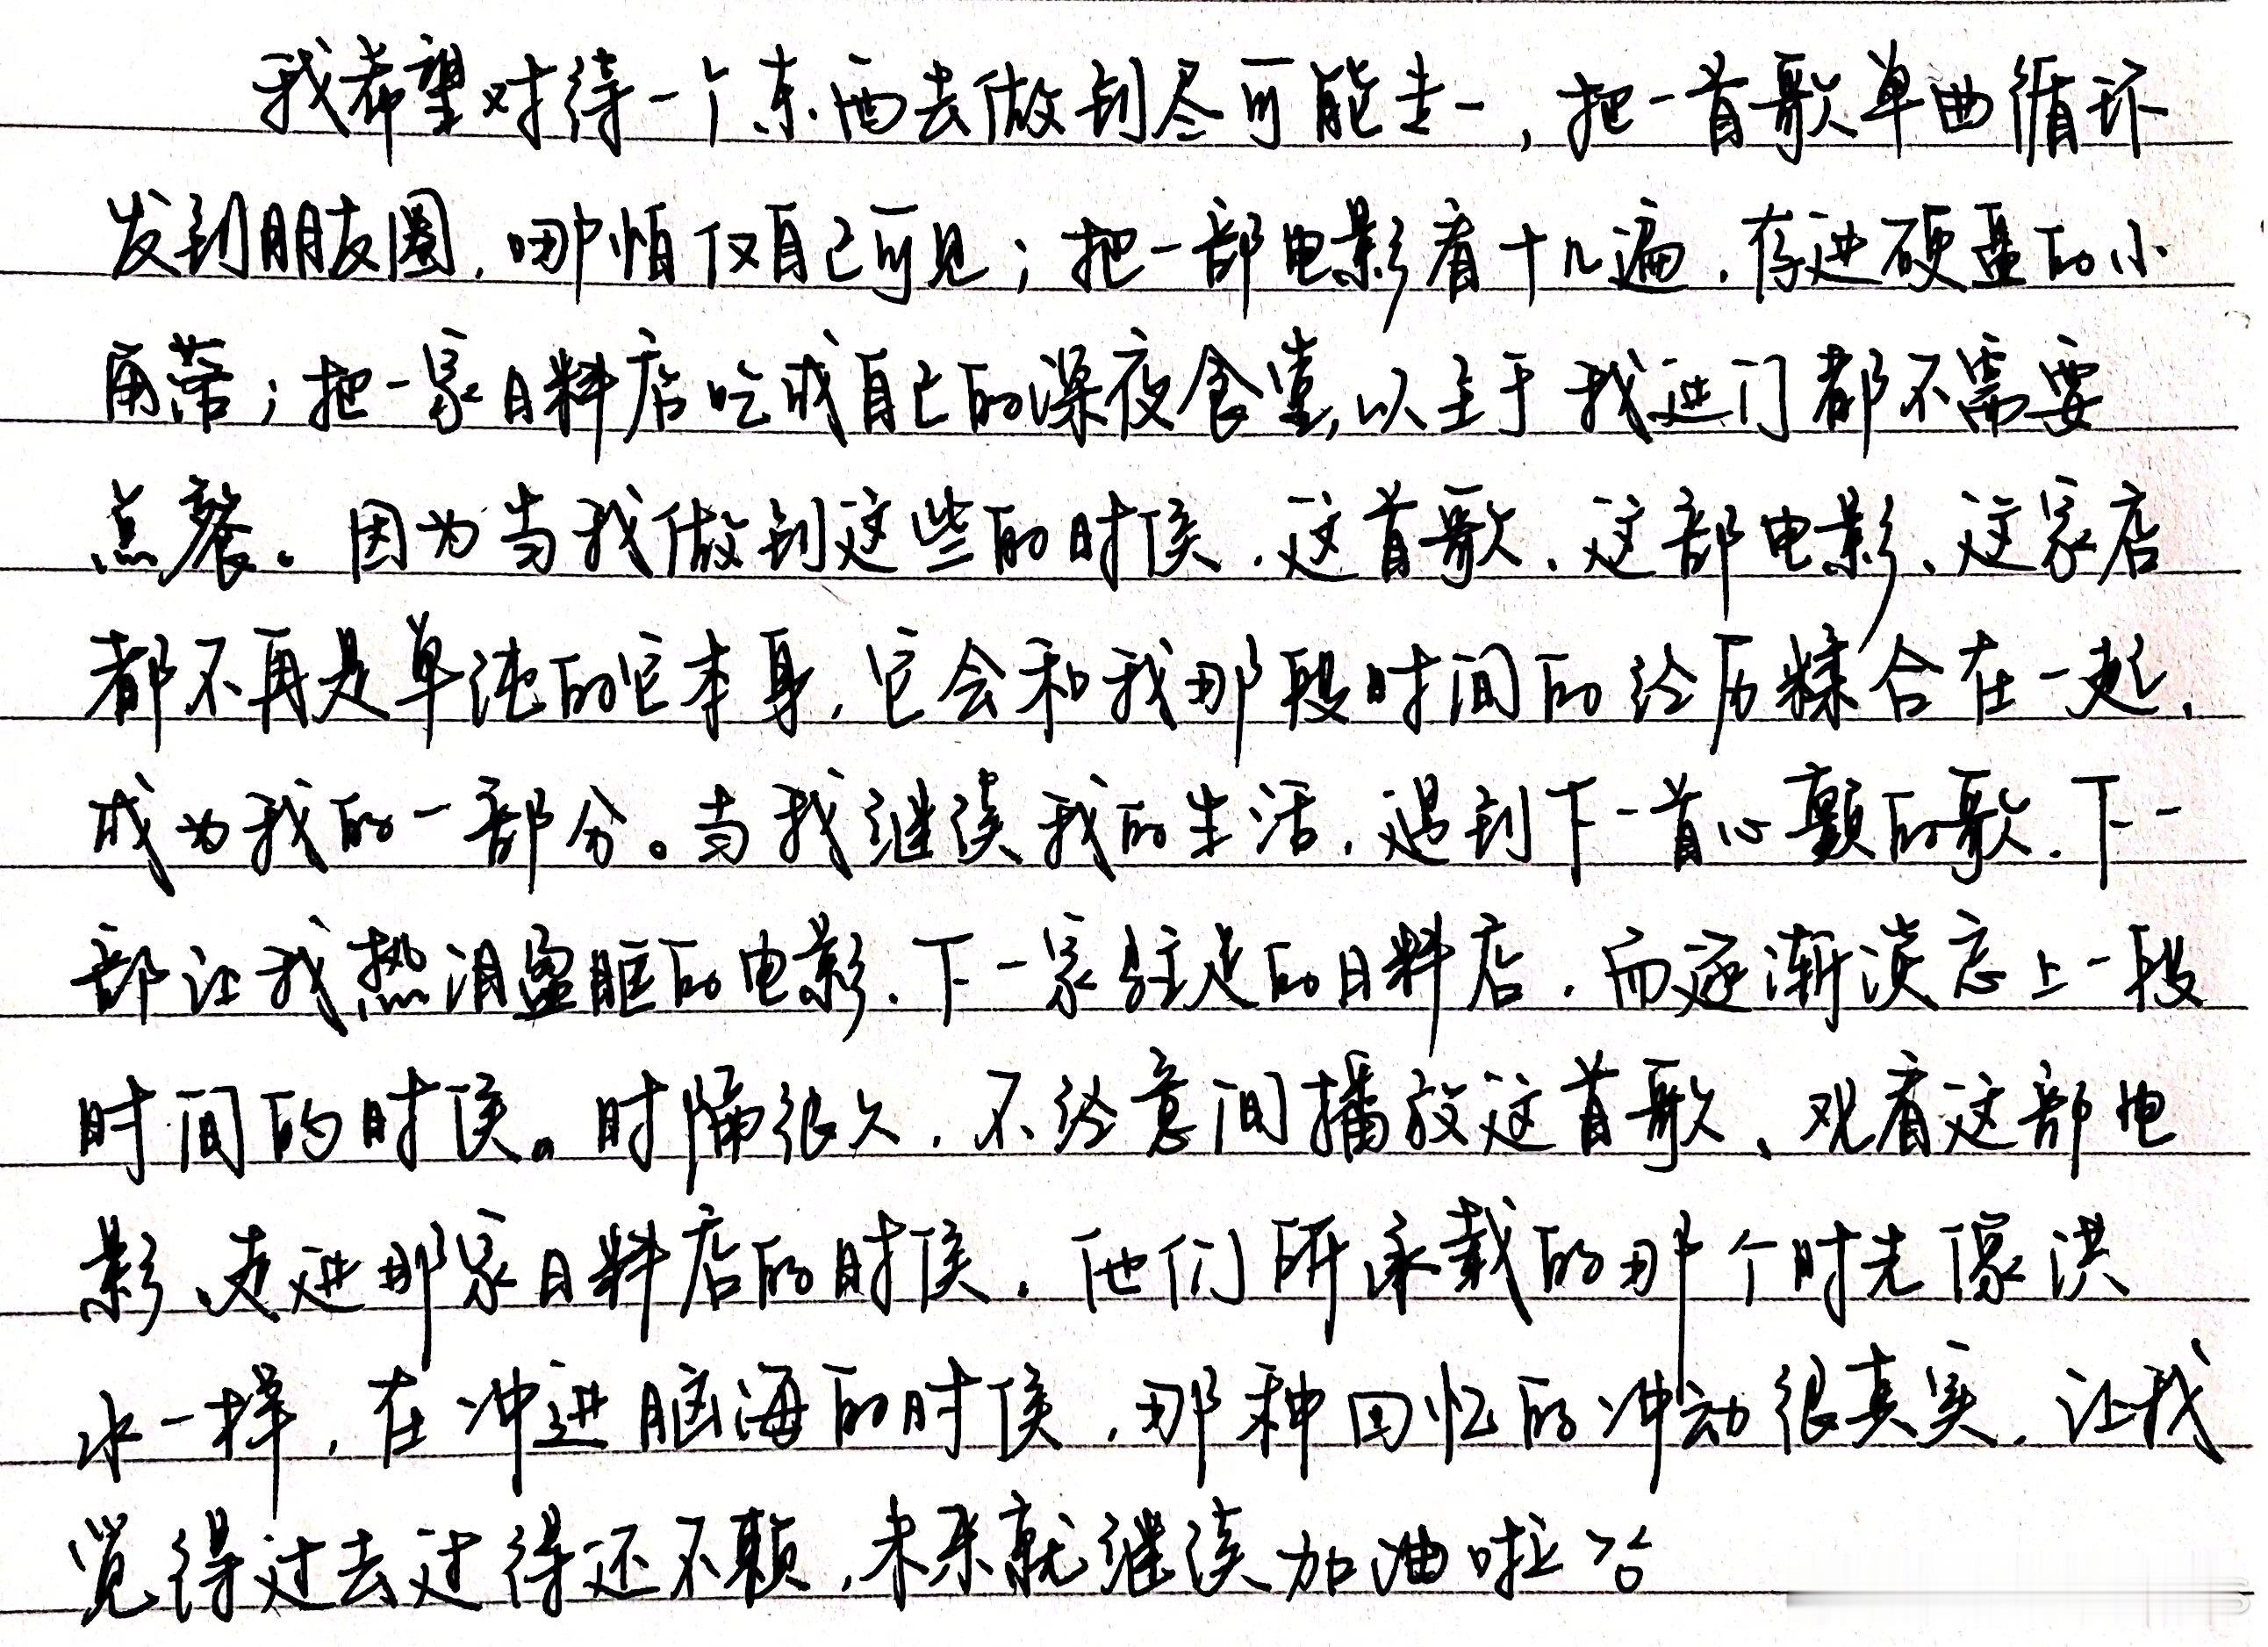 我希望对待一个东西去做到尽可能专一，把一首歌单曲循环
发到朋友圈，哪怕仅自己可见；把一部电影看十几遍，存进硬盘的小
角落；把一家日料店吃成自己的深夜食堂，以至于我进门都不需要
点餐。因为当我做到这些的时候，这首歌、这部电影、这家店
都不再是单纯的它本身，它会和我那段时间的经历糅合在一起，
成为我的一部分。当我继续我的生活，遇到下一首心颤的歌、下一
部让我热泪盈眶的电影、下一家驻足的日料店，而逐渐淡忘上一段
时间的时候。时隔很久，不经意间播放这首歌、观看这部电
影、走进那家日料店的时候，他们所承载的那个时光像洪
水一样，在冲进脑海的时候，那种回忆的冲动很真实，让我
觉得过去过得还不赖，未来就继续加油啦